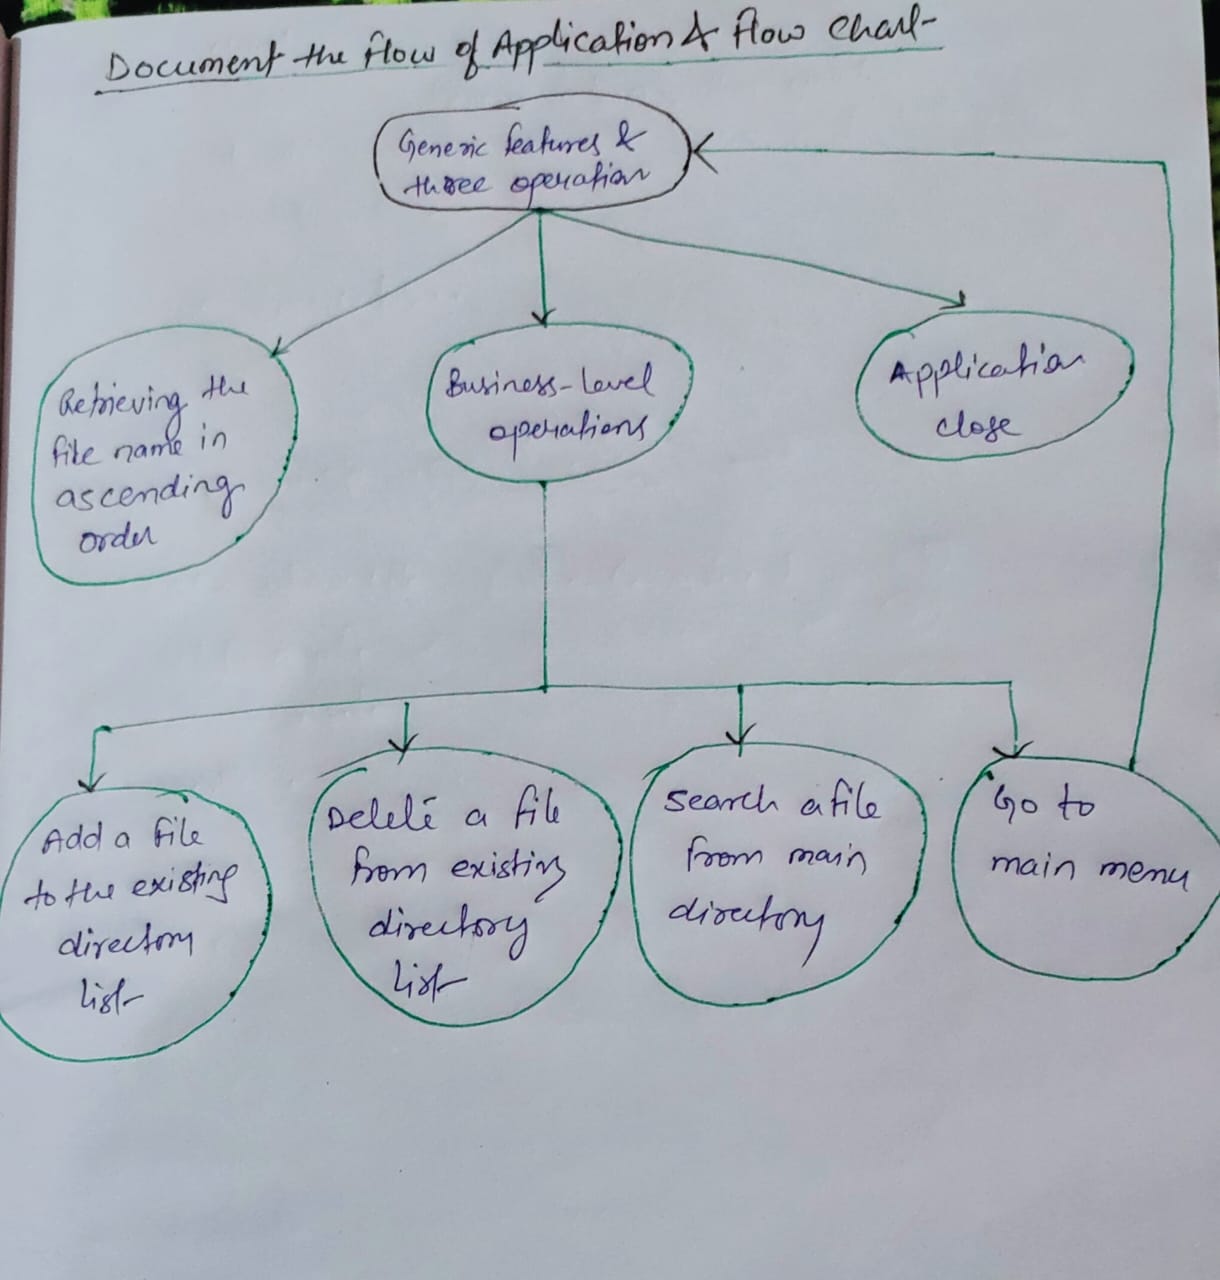 Document the flow of Application & flow chart
Generic features &
three operation
Retrieving the
file name in
ascending
order
Business-Level
operations
Application
close
Add a file
to the existing
directory
list
Delete a file
from existing
directory
list
Search a file
from main
directory
Go to
main menu